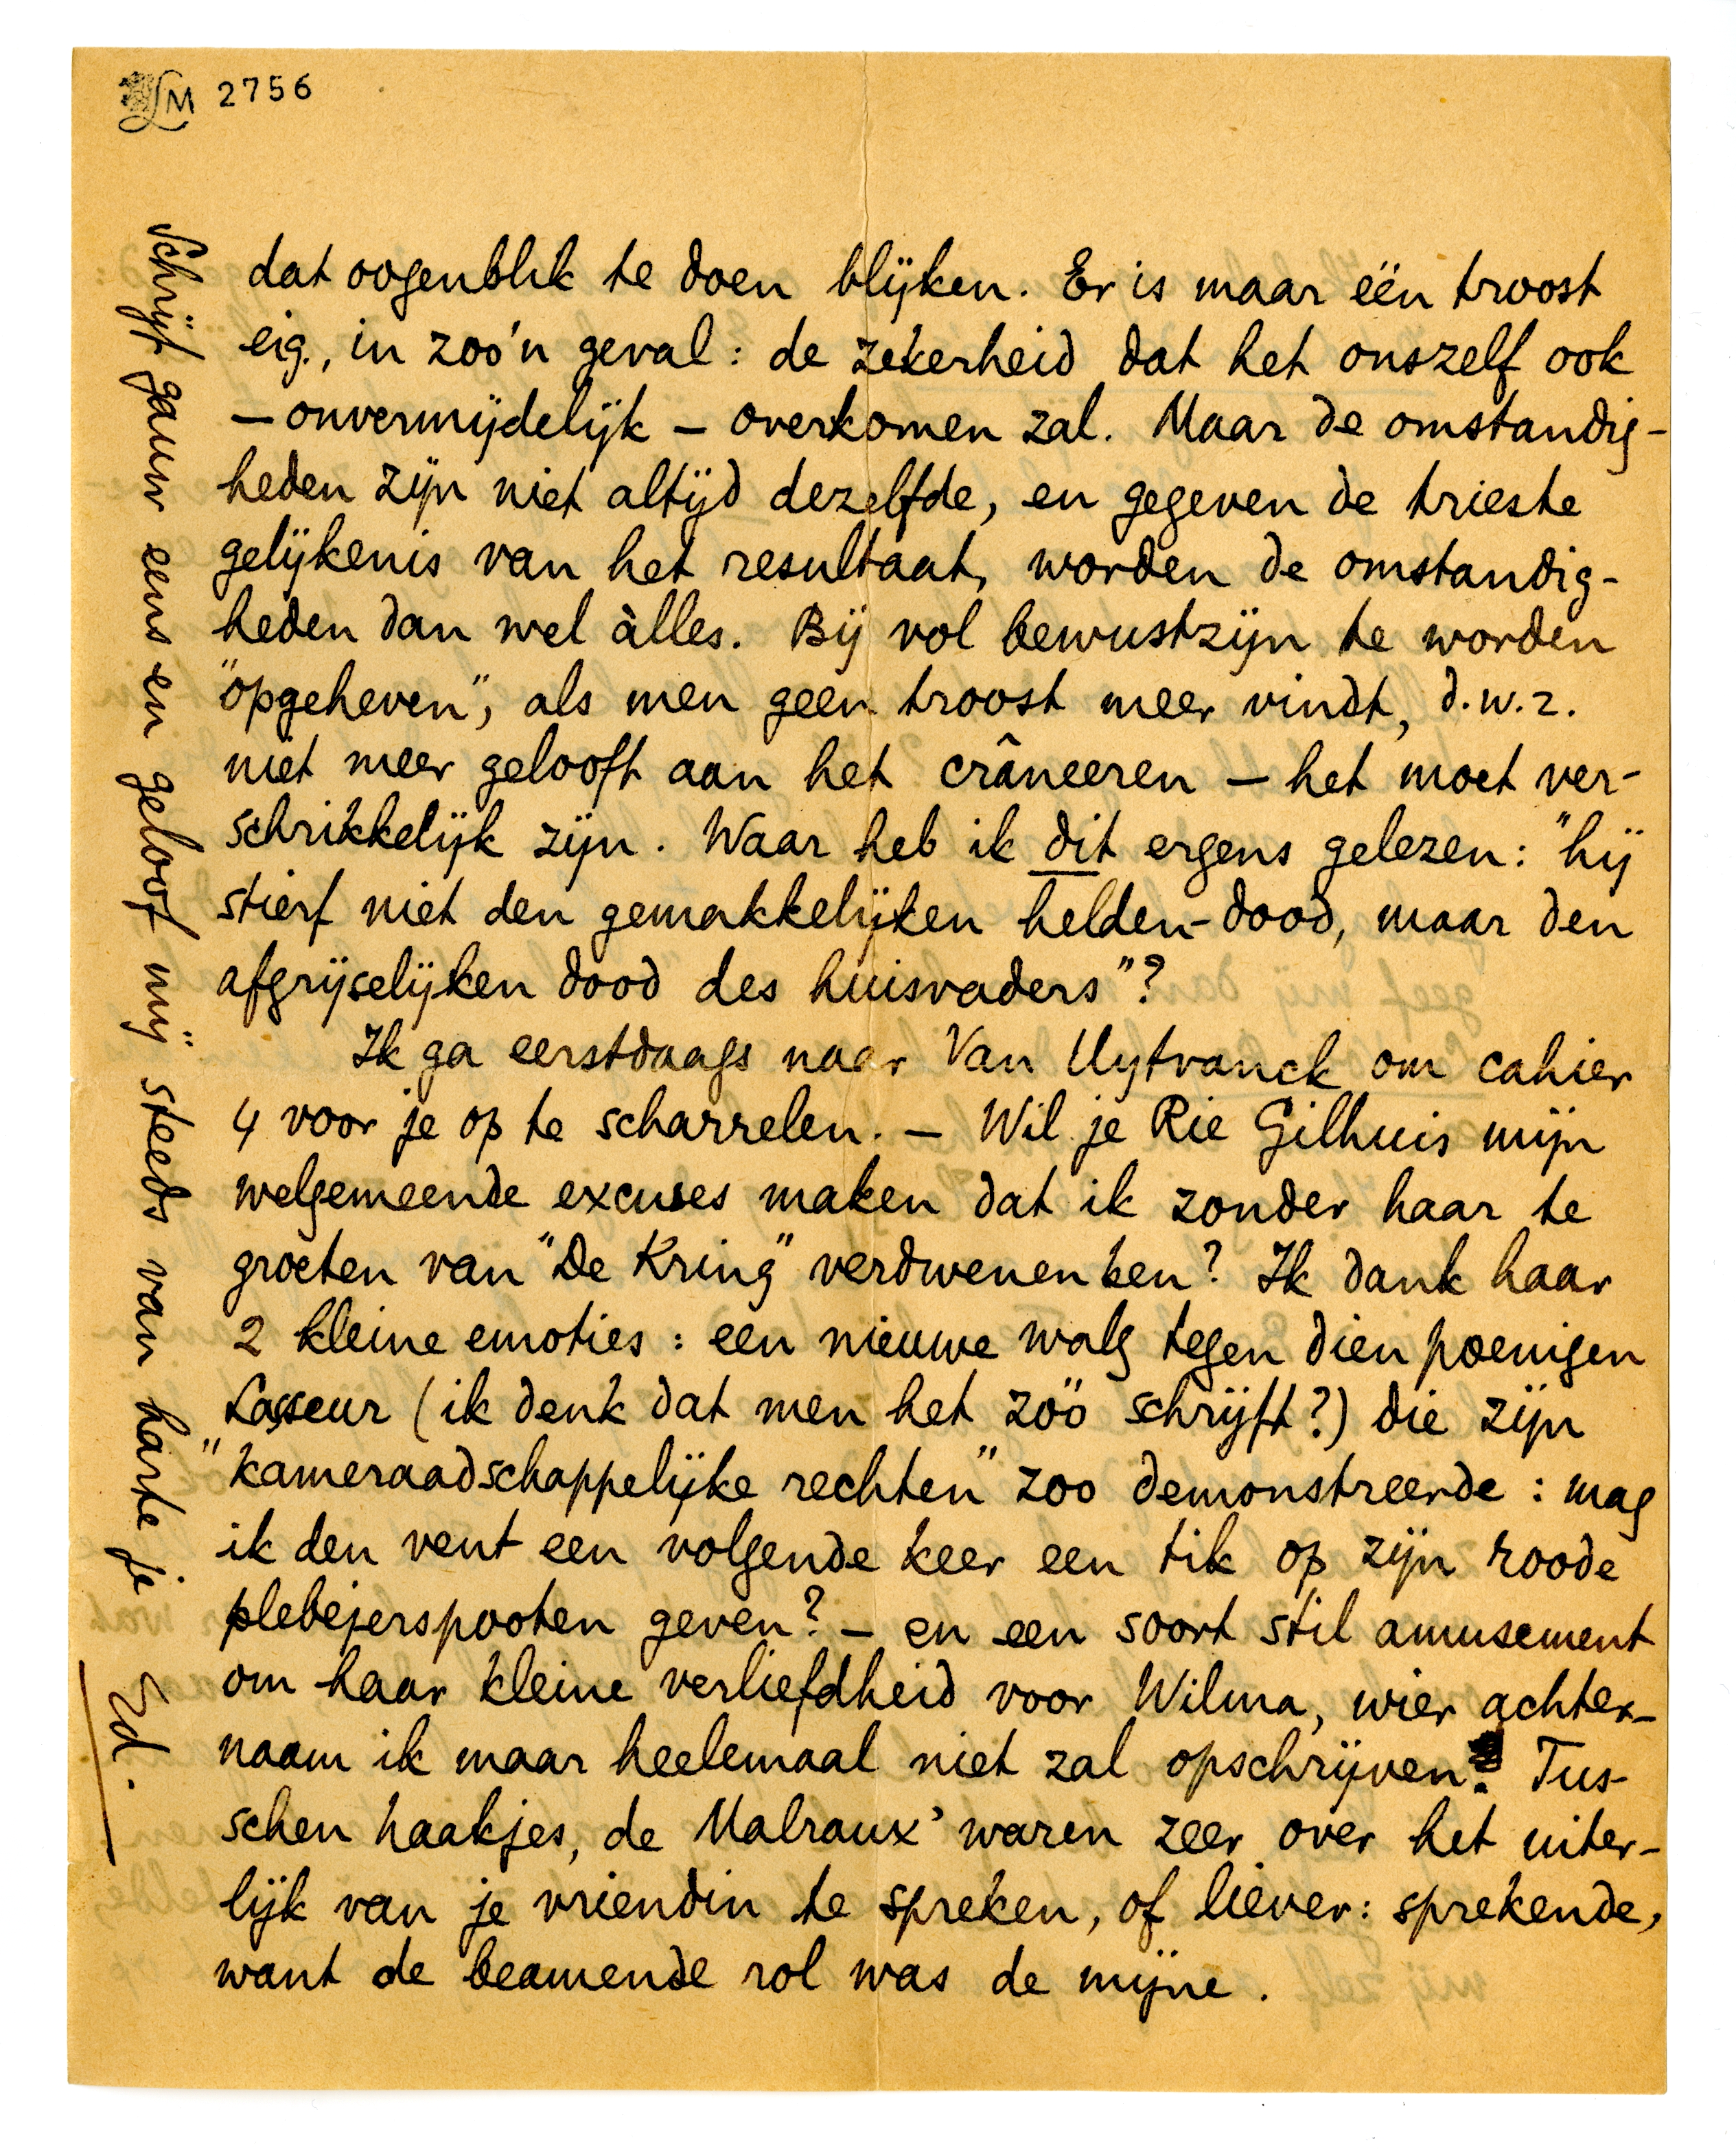 LM 2756
dat oogenblik te doen blijken. Er is maar één troost
eig., in zoo'n geval: de zekerheid dat het onszelf ook
– onvermijdelijk – overkomen zal. Maar de omstandig-
heden zijn niet altijd dezelfde, en gegeven de trieste
gelijkenis van het resultaat, worden de omstandig-
heden dan wel àlles. Bij vol bewustzijn te worden
"opgeheven", als men geen troost meer vindt, d.w.z.
niet meer gelooft aan het crâneeren – het moet ver-
schrikkelijk zijn. Waar heb ik dit ergens gelezen: "hij
stierf niet den gemakkelijken helden-dood, maar den
afgrijselijken dood des huisvaders"?
Ik ga eerstdaags naar Van Uytvanck om cahier
4 voor je op te scharrelen. – Wil je Rie Gilhuis mijn
welgemeende excuses maken dat ik zonder haar te
groeten van "De Kring" verdwenen ben? Ik dank haar
2 kleine emoties: een nieuwe walg tegen dien poenigen
Lasseur (ik denk dat men het zóó schrijft?) die zijn
"kameraadschappelijke rechten" zoo demonstreerde: mag
ik den vent een volgende keer een tik op zijn roode
plebejerspooten geven? – en een soort stil amusement
om haar kleine verliefdheid voor Wilma, wier achter-
naam ik maar heelemaal niet zal opschrijven! Tus-
schen haakjes, de Malraux' waren zeer over het uiter-
lijk van je vriendin te spreken, of liever: sprekende,
want de beamende rol was de mijne.
Schrijf gauw eens en geloof mij steeds van harte je
Ed.